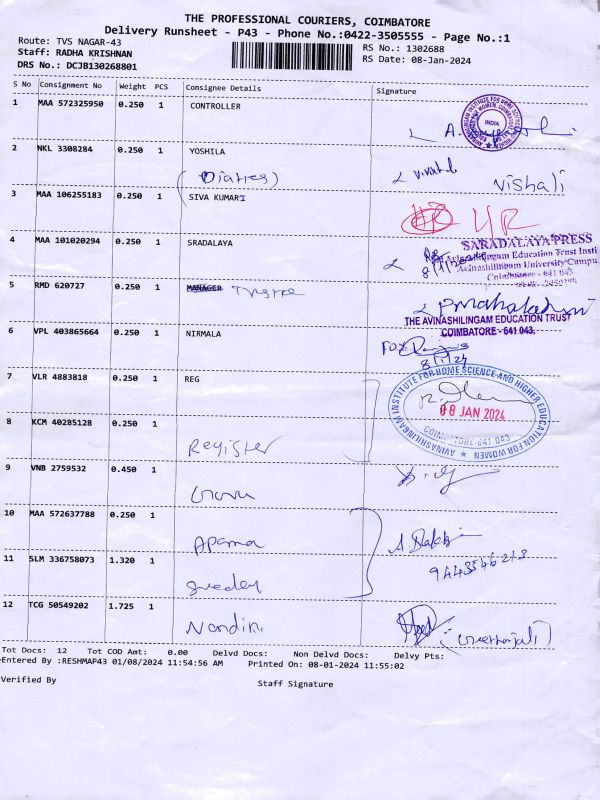 THE PROFESSIONAL COURIERS, COIMBATORE
Delivery Runsheet - P43 - Phone No.:0422-3505555 - Page No.:1
Route: TVS NAGAR-43
RS No.: 1302688
Staff: RADHA KRISHNAN
RS Date: 08-Jan-2024
DRS No.: DCJB130268801
S No Consignment No Weight PCS Consignee Details Signature
1 MAA 572325950 0.250 1 CONTROLLER
INDIA
2 NKL 3308284 0.250 1 YOSHILA
(Diaries)
Vishali
3 MAA 106255183 0.250 1 SIVA KUMARI
4 MAA 101020294 0.250 1 SRADALAYA
SARADALAYA PRESS
Avinashilingam Education Trust Insti
Avinashilingam University Campu
Coimbatore - 641 043
5 RMD 620727 0.250 1 MANAGER
P Mahalakshmi
THE AVINASHILINGAM EDUCATION TRUST
COIMBATORE - 641 043.
6 VPL 403865664 0.250 1 NIRMALA
8/1/24
7 VLR 4883818 0.250 1 REG
AVINASHILINGAM INSTITUTE FOR HOME SCIENCE AND HIGHER EDUCATION FOR WOMEN
08 JAN 2024
COIMBATORE-641 043
8 KCM 40285128 0.250 1
Register
9 VNB 2759532 0.450 1
10 MAA 572637788 0.250 1
Aparna
11 SLM 336758073 1.320 1
12 TCG 50549202 1.725 1
Nandini
(Geethanjali)
Tot Docs: 12 Tot COD Amt: 0.00 Delvd Docs: Non Delvd Docs: Delvy Pts:
Entered By :RESHMAP43 01/08/2024 11:54:56 AM Printed On: 08-01-2024 11:55:02
Verified By Staff Signature